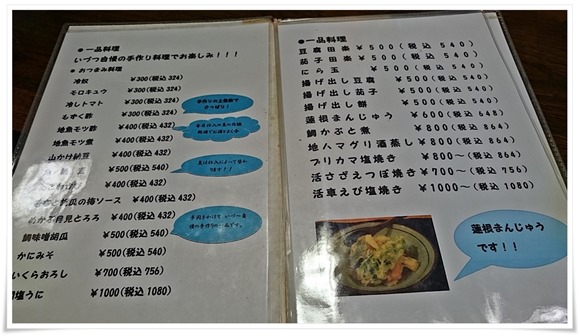 ●一品料理
いづつ自慢の手作り料理でお楽しみ！！！
●おつまみ料理
冷奴 ¥300(税込 324)
モロキュウ ¥300(税込 324)
冷しトマト ¥300(税込 324)
もずく酢 ¥300(税込 324)
地魚モツ酢 ¥400(税込 432)
地魚モツ煮 ¥400(税込 432)
山かけ納豆 ¥400(税込
¥500(税込 540)
¥400(税込 432)
瓜の梅ソース ¥400(税込
月見とろろ ¥400(税込 432)
調味噌胡瓜 ¥500(税込 540)
かにみそ ¥500(税込 540)
いくらおろし ¥700(税込 756)
うに ¥1000(税込 1080)
●一品料理
豆腐田楽 ¥500(税込 540)
茄子田楽 ¥500(税込 540)
にら玉 ¥500(税込 540)
揚げ出し豆腐 ¥500(税込 540)
揚げ出し茄子 ¥500(税込 540)
揚げ出し餅 ¥500(税込 540)
蓮根まんじゅう ¥600(税込 648)
鯛かぶと煮 ¥800(税込 864)
地ハマグリ酒蒸し ¥800(税込 864)
ブリカマ塩焼き ¥800〜(税込 864)
活さざえつぼ焼き ¥700〜(税込 756)
活車えび塩焼き ¥1000〜(税込 1080)
蓮根まんじゅう
です！！